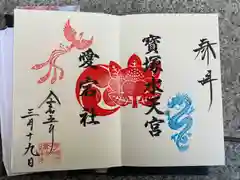 奉拝
寳塚水天宮
愛宕社
令和五年
三月十九日